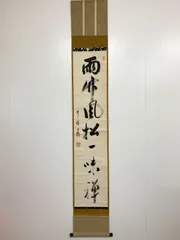 雨竹風松一味禅